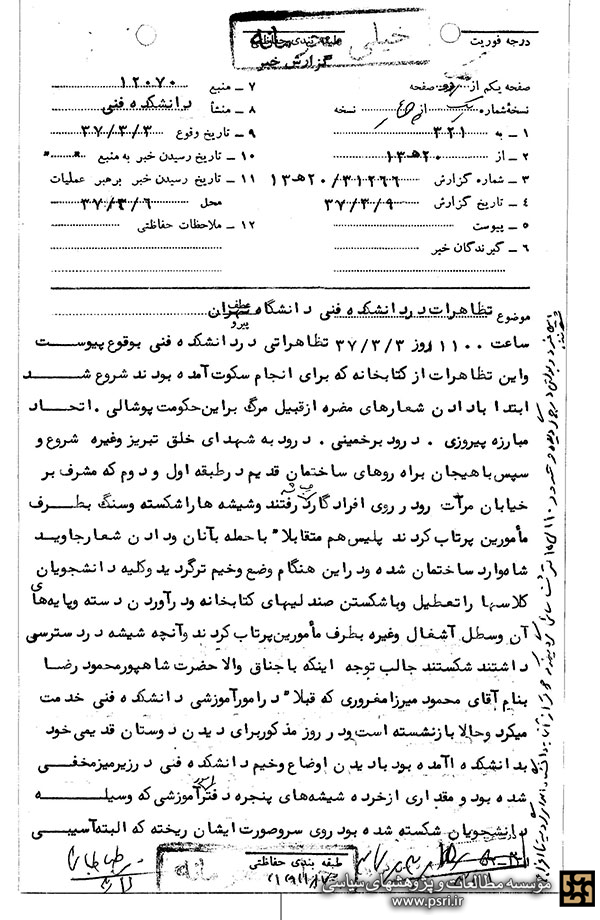 درجه فوریت
خیلی محرمانه
طبقه بندی حفاظتی
گزارش خبر
صفحه یکم از دو صفحه
نسخهٔ شماره یک از چهار نسخه
۱ ـ به ۳۲۱
۲ ـ از ۲۰هـ۱۳
۳ ـ شماره گزارش ۲۰/۳۱۲۶۶هـ۱۳
۴ ـ تاریخ گزارش ۳۷/۳/۹
۵ ـ پیوست
۶ ـ گیرندگان خبر
۷ ـ منبع ۱۲۰۷۰
۸ ـ منشأ دانشکده فنی
۹ ـ تاریخ وقوع ۳۷/۳/۳
۱۰ ـ تاریخ رسیدن خبر به منبع
۱۱ ـ تاریخ رسیدن خبر برهبر عملیات
محل ۳۷/۳/۶
۱۲ ـ ملاحظات حفاظتی
موضوع تظاهرات در دانشکده فنی دانشگاه تهران
عطف
پیرو
ساعت ۱۱۰۰ روز ۳۷/۳/۳ تظاهراتی در دانشکده فنی بوقوع پیوست
واین تظاهرات از کتابخانه که برای انجام سکوت آمده بودند شروع شد
ابتدا بادادن شعارهای مضره ازقبیل مرگ براین حکومت پوشالی . اتحاد
مبارزه پیروزی . درود برخمینی . درود به شهدای خلق تبریز وغیره شروع و
سپس باهیجان براه روهای ساختمان قدیم درطبقه اول و دوم که مشرف بر
خیابان مرآت رودر روی افراد گارد رفتند وشیشه هاراشکسته وسنگ بطرف
مأمورین پرتاب کردند پلیس هم متقابلا" باحمله بآنان ودادن شعارجاوید
شاه وارد ساختمان شده ودراین هنگام وضع وخیم ترگردید وکلیه دانشجویان
کلاسها را تعطیل وباشکستن صندلیهای کتابخانه ودرآوردن دسته وپایه های
آن وسطل آشغال وغیره بطرف مأمورین پرتاب کردند وآنچه شیشه دردسترسی
داشتند شکستند جالب توجه اینکه باجناق والا حضرت شاهپور محمود رضا
بنام آقای محمود میرزامغروری که قبلا" درامورآموزشی دانشکده فنی خدمت
میکرد وحالا بازنشسته است ودر روز مذکوربرای دیدن دوستان قدیمی خود
بدانشکده آمده بود بادیدن اوضاع وخیم دانشکده فنی درزیرمیزمخفی
شده بود و مقداری ازخرده شیشه‌های پنجره دفترآموزشی که وسیله
دانشجویان شکسته شده بود روی سروصورت ایشان ریخته که البته آسیبی
طبقه بندی حفاظتی
مؤسسه مطالعات و پژوهشهای سیاسی
www.psri.ir